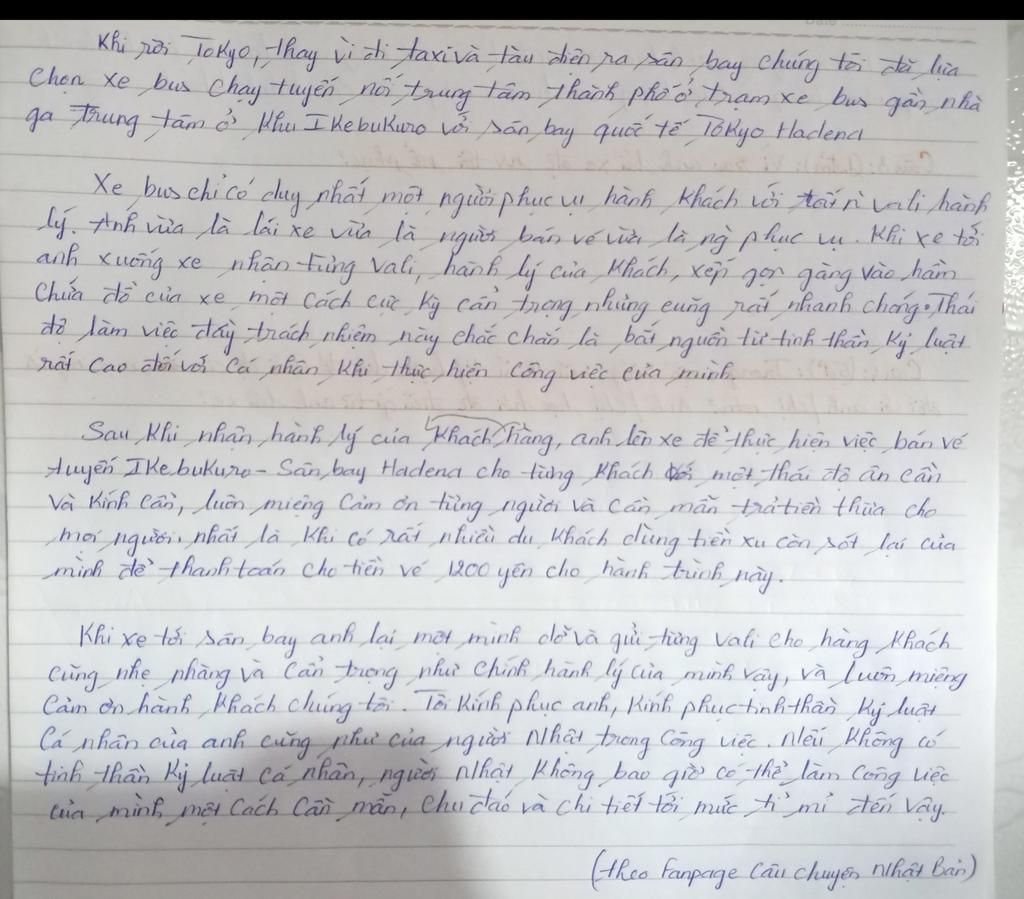 Khi rời Tokyo, thay vì đi taxi và tàu điện ra sân bay chúng tôi đã lựa
chọn xe bus chạy tuyến nối trung tâm thành phố ở trạm xe bus gần nhà
ga trung tâm ở khu Ikebukuro với sân bay quốc tế Tokyo Hadena
Xe bus chỉ có duy nhất một người phục vụ hành khách với vali hành
lý. Anh vừa là lái xe vừa là người bán vé vừa là ng phục vụ. Khi xe tới
anh xuống xe nhận từng vali, hành lý của khách, xếp gọn gàng vào hầm
chứa đồ của xe một cách cực kỳ cẩn trọng nhưng cũng rất nhanh chóng. Thái
độ làm việc đầy trách nhiệm này chắc chắn là bắt nguồn từ tinh thần kỷ luật
rất cao đối với cá nhân khi thực hiện công việc của mình.
Sau khi nhận hành lý của khách hàng, anh lên xe để thực hiện việc bán vé
tuyến Ikebukuro - Sân bay Hadena cho từng khách với một thái độ ân cần
và kính cẩn, luôn miệng cảm ơn từng người và cần mẫn trả tiền thừa cho
mọi người. nhất là khi có rất nhiều du khách dùng tiền xu còn sót lại của
mình để thanh toán cho tiền vé 1200 yên cho hành trình này.
Khi xe tới sân bay anh lại một mình dỡ và gửi từng vali cho hàng khách
cũng nhẹ nhàng và cẩn trọng như chính hành lý của mình vậy, và luôn miệng
cảm ơn hành khách chúng tôi. Tôi kính phục anh, kính phục tinh thần kỷ luật
cá nhân của anh cũng như của người Nhật trong công việc. Nếu không có
tinh thần kỷ luật cá nhân, người Nhật không bao giờ có thể làm công việc
của mình một cách cần mẫn, chu đáo và chi tiết tới mức tỉ mỉ đến vậy.
(theo Fanpage câu chuyện Nhật Bản)